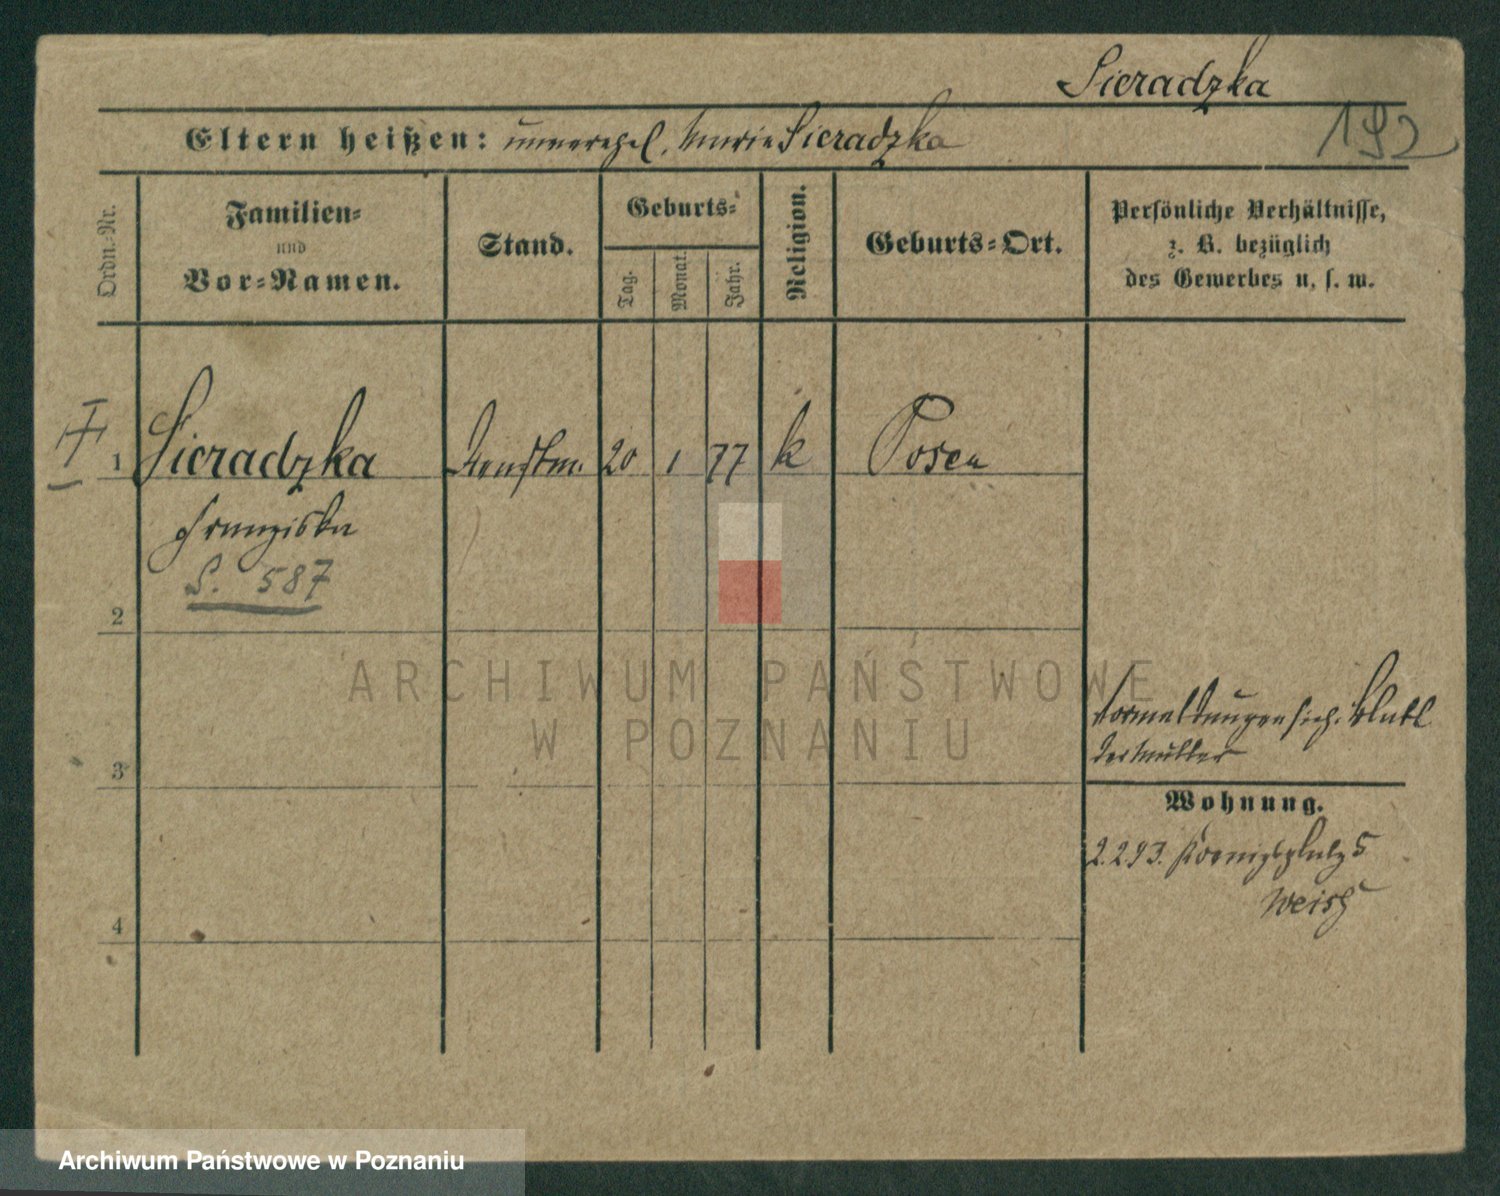 Sieradzka
192
Eltern heißen: unverehel. Marie Sieradzka
Ordn.-Nr.
Familien-
und
Vor-Namen.
Stand.
Geburts-
Tag.
Monat.
Jahr.
Religion.
Geburts-Ort.
Persönliche Verhältnisse,
z. B. bezüglich
des Gewerbes u. s. w.
1 Sieradzka Dienstm. 20 1 77 k Posen
Franziska
S. 587
2
3
4
der Mutter
Wohnung.
2.2.93. Koenigsplatz 5
ARCHIWUM PAŃSTWOWE
W POZNANIU
Archiwum Państwowe w Poznaniu